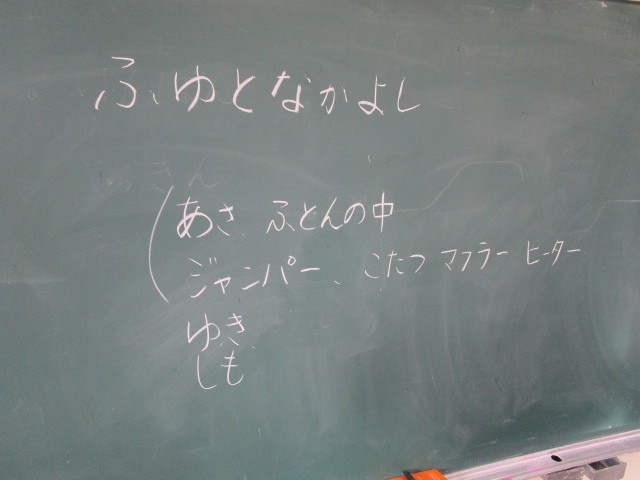 ふゆとなかよし
あさ ふとんの中
ジャンパー、こたつ マフラー ヒーター
ゆき
しも